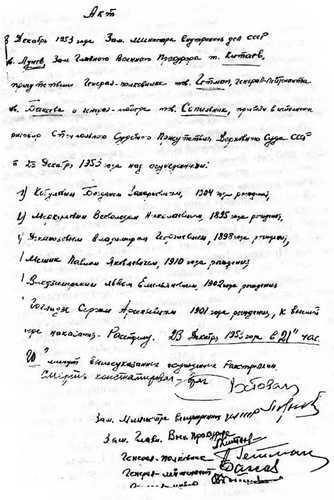 Акт
Декабря 1953 года Зам. министра внутренних дел СССР
тов. Лунев, Зам. Главного Военного Прокурора т. Китаев,
присутствии генерал-полковника тов. Гетман, генерал-лейтенанта
тов. Бакеева и генерал-майора тов. Сопильник, привели в исполнение
Специального Судебного Присутствия Верховного Суда СССР
23 Декабря 1953 года над осужденными:
1) Кобуловым Богданом Захарьевичем, 1904 года рождения,
2) Меркуловым Всеволодом Николаевичем, 1895 года рождения,
Деканозовым Владимиром Георгиевичем, 1898 года рождения,
Мешик Павлом Яковлевичем, 1910 года рождения
Влодзимирским Львом Емельяновичем, 1902 года рождения
Гоглидзе Сергеем Арсентьевичем 1901 года рождения, к высшей
мере наказания - Расстрелу. 23 Декабря 1953 года в 21 час.
минут вышеуказанные осужденные расстреляны.
Смерть констатировал - врач
Зам. Министра Внутренних дел
Зам. Главн. Воен Прокурора Китаев
Генерал-полковник Гетман
Генерал-лейтенант Бакеев